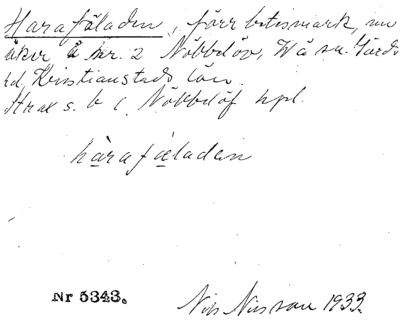 Harafäladen, förr betesmark, nu
åker å nr. 2 Nöbbelöv, Wä sn. Gärds
hd, Kristianstads län.
Strax s. b. l. Nöbbelöf hpl.
hàrafæladen
Nr 5343.
Nils Nilsson 1933.